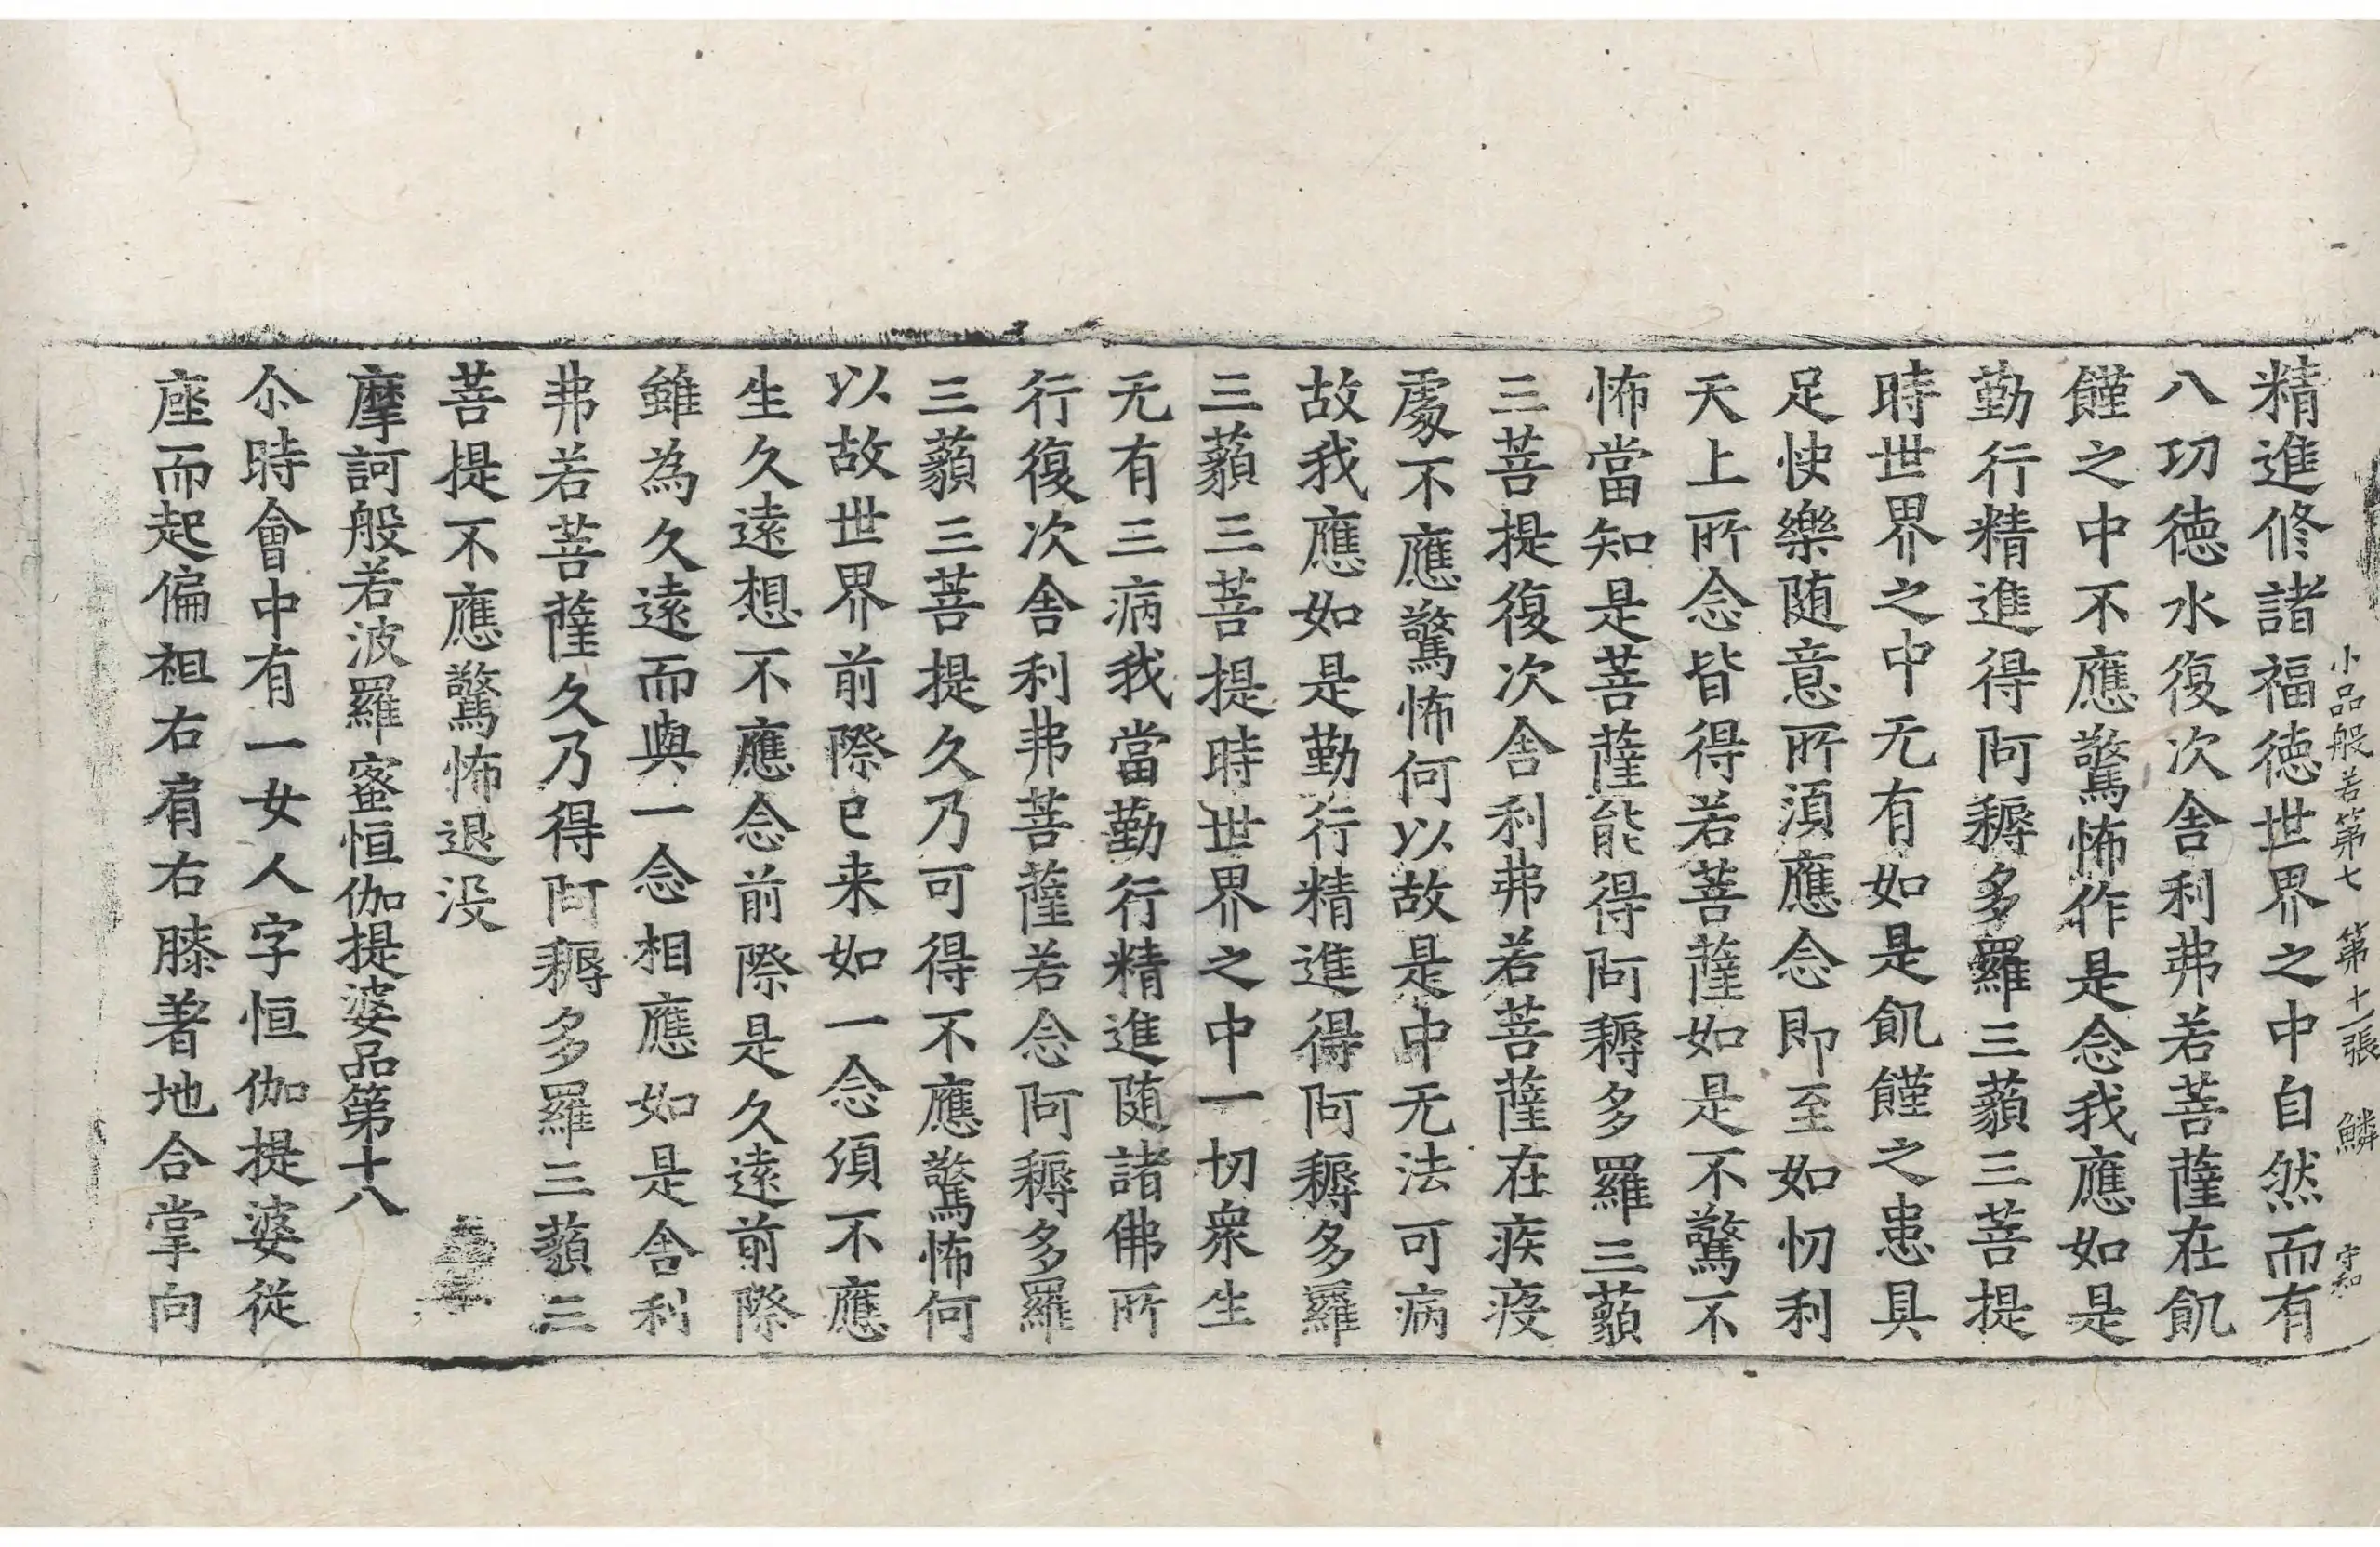 小品般若第七　第十一張　鱗　守知
精進修諸福徳世界之中自然而有
八㓛徳水復次舎利弗若菩薩在飢
饉之中不應驚怖作是念我應如是
勤行精進得阿耨多羅三藐三菩提
時世界之中无有如是飢饉之患具
足快樂随意所湏應念即至如忉利
天上所念皆得若菩薩如是不驚不
怖當知是菩薩能得阿耨多羅三藐
三菩提復次舎利弗若菩薩在疾疫
處不應驚怖何以故是中无法可病
故我應如是勤行精進得阿耨多羅
三藐三菩提時世界之中一切衆生
无有三病我當勤行精進随諸佛所
行復次舎利弗菩薩若念阿耨多羅
三藐三菩提久乃可得不應驚怖何
以故世界前際已来如一念湏不應
生久遠想不應念前際是久遠前際
雖為久遠而與一念相應如是舎利
弗若菩薩久乃得阿耨多羅三藐三
菩提不應驚怖退没
摩訶般若波羅蜜恒伽提婆品第十八
尒時會中有一女人字恒伽提婆従
座而起偏袒右肩右膝著地合掌向